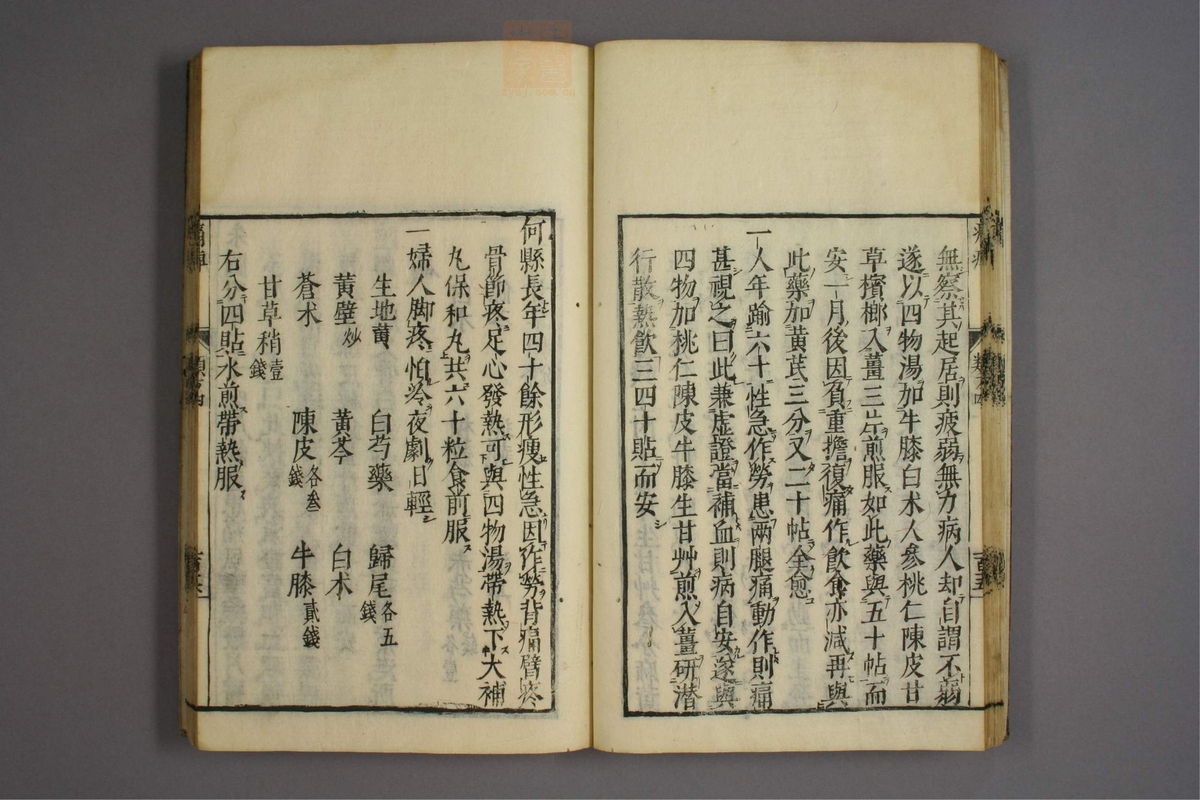 無察其起居則疲弱無力病人却自謂不弱
遂以四物湯加牛膝白朮人參桃仁陳皮甘
草檳榔入薑三片煎服如此藥與五十帖而
安一月後因負重擔復痛作飲食亦減再與
此藥加黃芪三分又二十帖全愈
一人年踰六十性急作勞患兩腿痛動作則痛
甚視之曰此兼虛證當補血則病自安遂與
四物加桃仁陳皮牛膝生甘艸煎入薑研潛
行散熱飲三四十貼而安
何縣長年四十餘形瘦性急因作勞背痛臂疼
骨節疼足心發熱可與四物湯帶熱下大補
丸保和丸共六十粒食前服
一婦人脚疼怕冷夜劇日輕
生地黃 白芍藥 歸尾各五錢
黃蘗炒 黃芩 白朮
蒼朮 陳皮各叁錢 牛膝貳錢
甘草稍壹錢
右分四貼水煎帶熱服